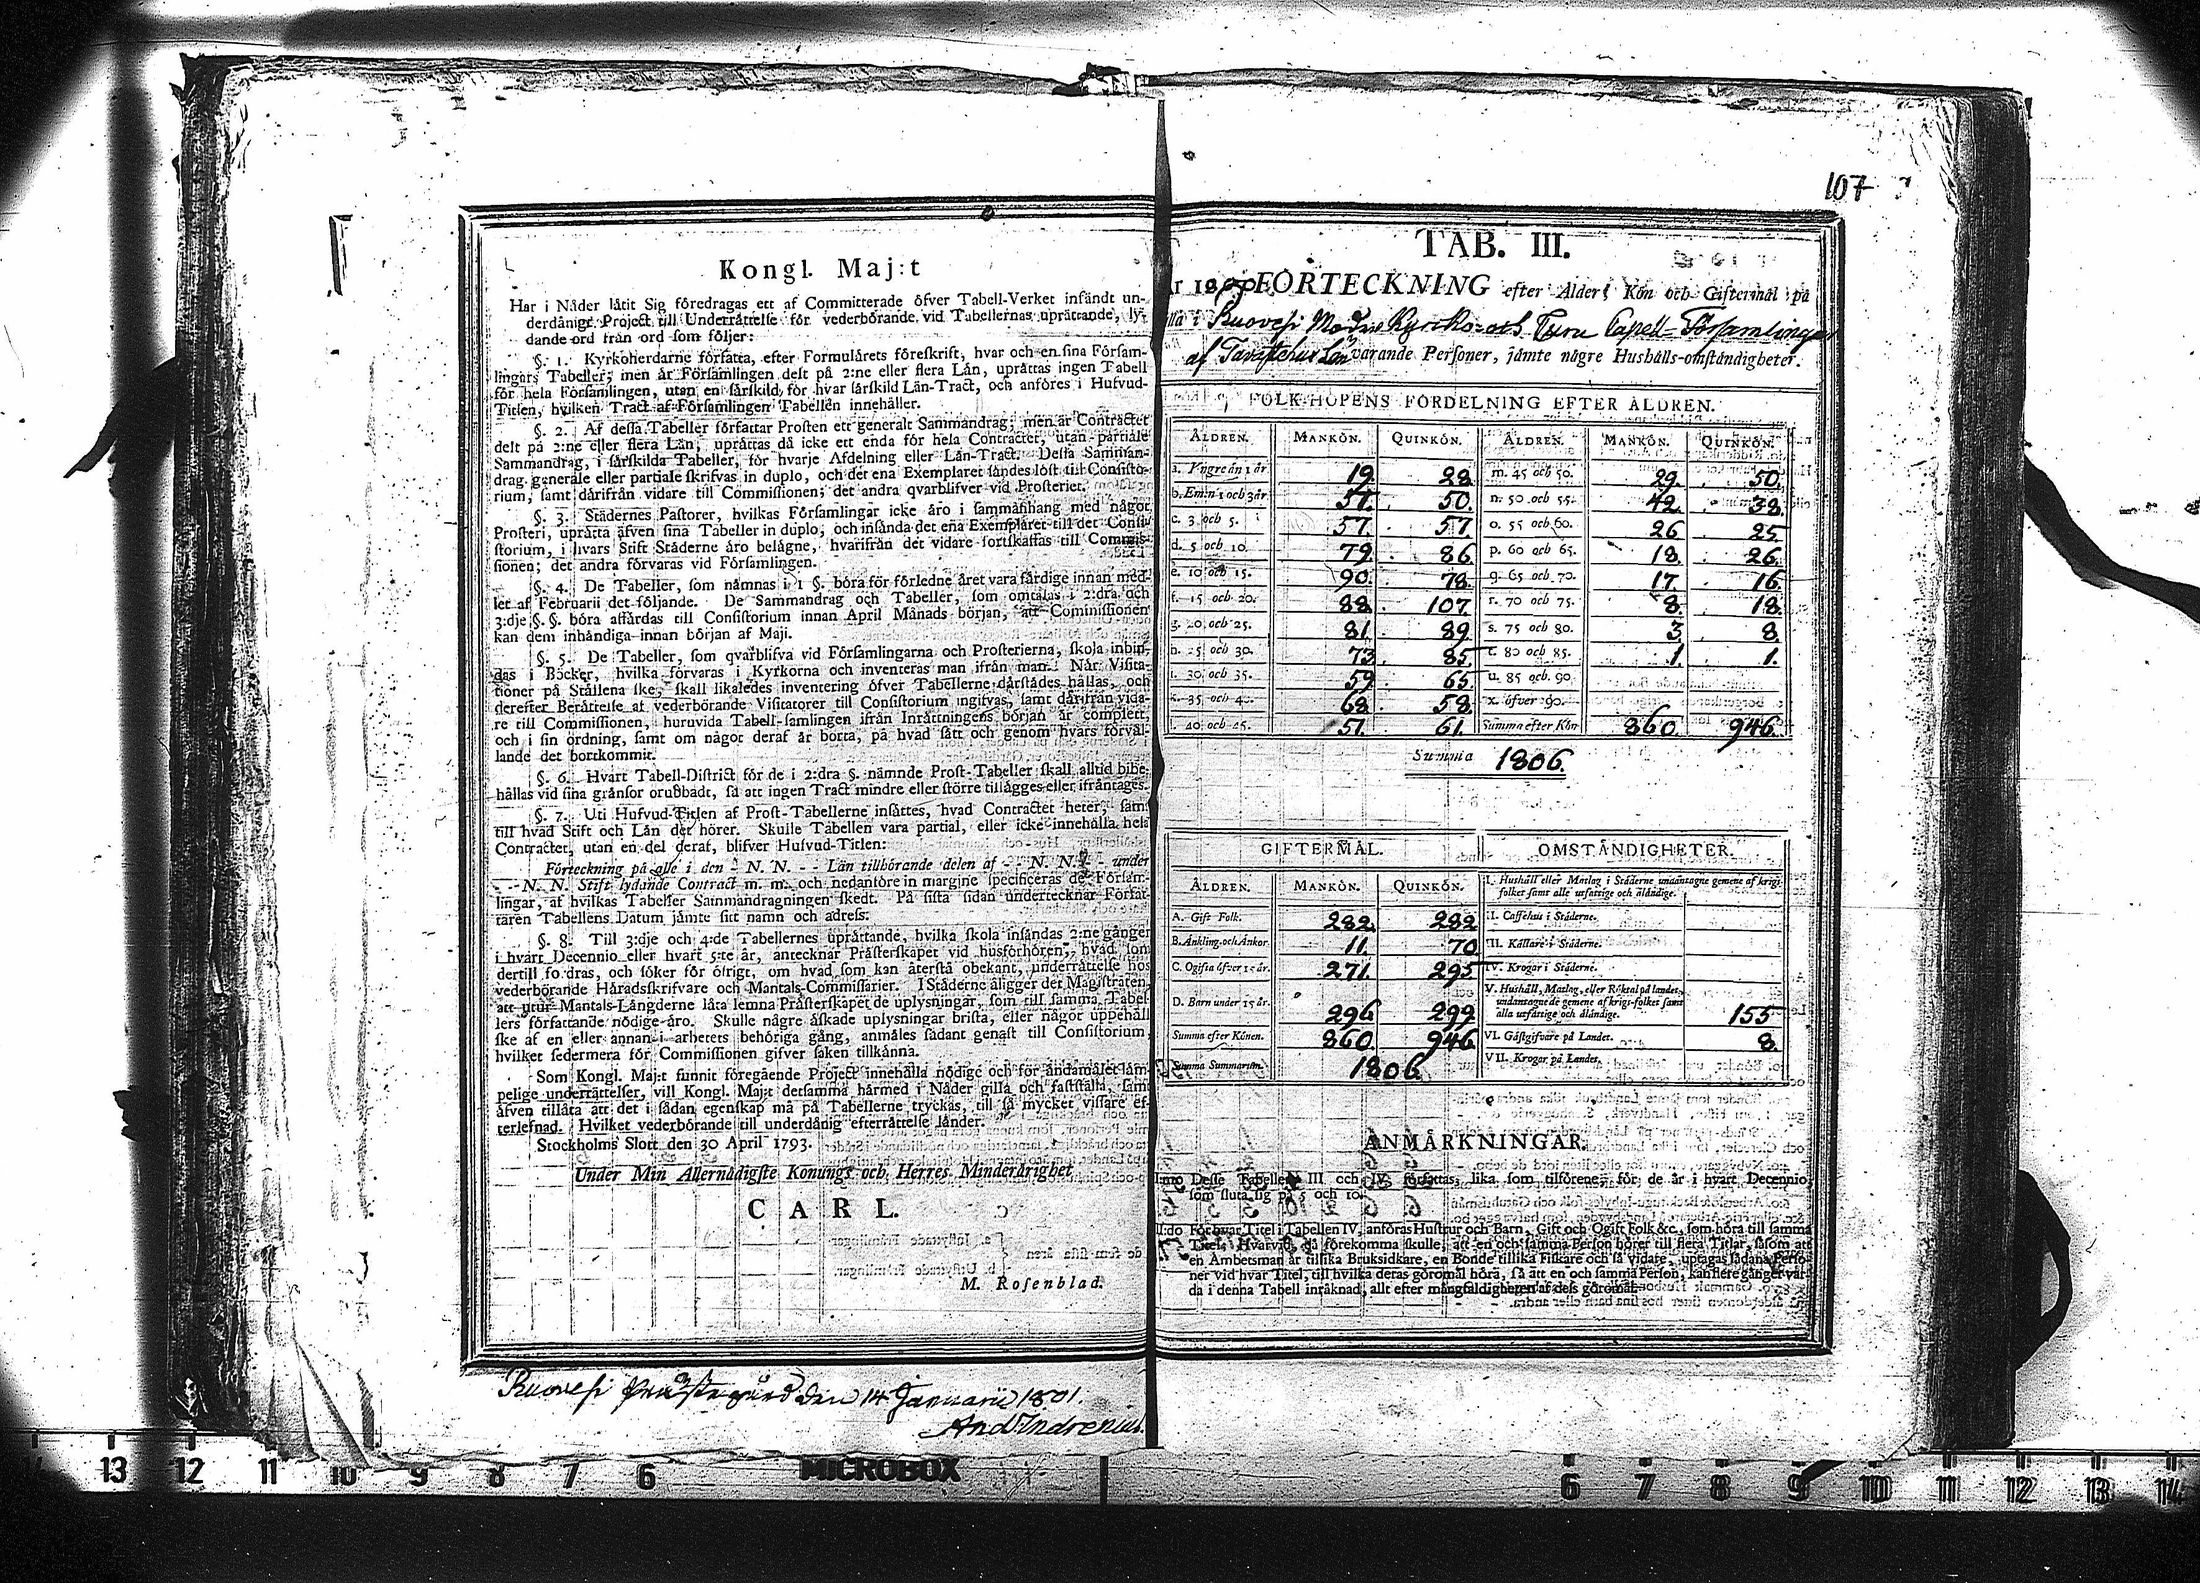 107
Kongl. Maj:t
Har i Nåder låtit Sig föredragas ett af Committerade öfver Tabell-Verket insändt un-
derdånigt Project till Underrättelse för vederbörande vid Tabellernas upprättande, ly-
dande ord från ord som följer:
§. 1. Kyrkoherdarne författa, efter Formulårets föreskrift, hvar och en sina Församlin-
lingars Tabeller; men är Församlingen delt på 2:ne eller flera Lån, upråttas ingen Tabell
för hela Församlingen, utan en särskild för hvar särskild Län-Tract, och anföres i Hufvud-
Titlen, hvilken Tract af Församlingen Tabellen innehåller.
§. 2. Af dessa Tabeller författar Prosten ett generalt Sammandrag; men är Contractet
delt på 2:ne eller flera Län, upråttas då icke ett enda för hela Contractet, utan partiale
Sammandrag, i särskilda Tabeller, för hvarje Afdelning eller Län-Tract. Dessa Samman-
drag generale eller partiale skrifvas in duplo, och det ena Exemplaret sändes löst till Consisto-
rium, samt därifrån vidare till Commissionen; det andra qvarblifver vid Prosteriet.
§. 3. Städernes Pastorer, hvilkas Församlingar icke äro i sammanhang med något
Prosteri, upråtta äfven sina Tabeller in duplo, och insånda det ena Exemplaret till det Consi-
storium, i hvars Stift Städerne äro belägne, hvarifrån det vidare fortskaffas till Commis-
sionen; det andra förvaras vid Församlingen.
§. 4. De Tabeller, som nämnas i 1 §. böra för förledne året vara färdige innan med-
let af Februarii det följande. De Sammandrag och Tabeller, som omtalas i 2:dra och
3:dje §. §. böra affärdas till Consistorium innan April Månads början, att Commissionen
kan dem inhändiga innan början af Maji.
§. 5. De Tabeller, som qvarblifva vid Församlingarna och Prosterierna, skola inbin-
das i Böcker, hvilka förvaras i Kyrkorna och inventeras man ifrån man. När Visita-
tioner på Ställena ske, skall likaledes inventering öfver Tabellerne därstådes hållas, och
derefter Berättelse af vederbörande Visitatorer till Consistorium ingifvas, samt därifrån vida-
re till Commissionen, huruvida Tabell-samlingen ifrån Inråttningens början är complett,
och i sin ordning, samt om något deraf är borta, på hvad sätt och genom hvars förval-
lande det bortkommit.
§. 6. Hvart Tabell-District för de i 2:dra §. nämnde Prost-Tabeller skall alltid bibe-
hållas vid sina gränsor orubbadt, så att ingen Tract mindre eller större tillägges eller ifråntages.
§. 7. Uti Hufvud-Titlen af Prost-Tabellerne insåttes, hvad Contractet heter, samt
till hvad Stift och Län det hörer. Skulle Tabellen vara partial, eller icke innehålla hela
Contractet, utan en del deraf, blifver Hufvud-Titlen:
Förteckning på alle i den - N. N. - - Län tillhörande delen af - - N. N. - - under
- - N. N. Stift lydande Contract m. m. och nedanföre in margine specificeras de Försam-
lingar, af hvilkas Tabeller Sammandragningen skedt. På sista sidan undertecknar Förfat-
taren Tabellens Datum jämte sitt namn och adress.
§. 8. Till 3:dje och 4:de Tabellernes upråttande, hvilka skola insändas 2:ne gånger
i hvart Decennio eller hvart 5:te år, antecknar Prästerskapet vid husförhören, hvad som
dertill fordras, och söker för öfrigt, om hvad som kan återstå obekant, underråttelse hos
vederbörande Häradsskrifvare och Mantals-Commissarier. I Städerne åligger det Magistraten,
att utur Mantals-Längderne låta lemna Prästerskapet de uplysningar, som till samma Tabel-
lers författande nödige äro. Skulle någre åskade uplysningar brista, eller något uppehåll
ske af en eller annan i arbetets behöriga gång, anmäles sådant genast till Consistorium,
hvilket sedermera för Commissionen gifver saken tillkänna.
Som Kongl. Maj:t funnit föregående Project innehålla nödige och för ändamålet läm-
pelige underråttelser, vill Kongl. Maj:t detsamma härmed i Nåder gilla och fastställa, samt
äfven tillåta att det i sådan egenskap må på Tabellerne tryckas, till så mycket vissare ef-
terlefnad. Hvilket vederbörande till underdånig efterråttelse länder.
Stockholms Slott den 30 April 1793.
Under Min Allernådigste Konungs och Herres Minderårighet
CARL.
M. Rosenblad.
Ruovesi Prästegård den 14 Januarii 1801.
And Indrenius.
TAB. III.
År 1800 FÖRTECKNING efter Ålder, Kön och Giftermål på
alla i Ruovesi Moder Kyrko- och Turu Capell-Församlingar
af Tavastehus Län varande Personer, jämte någre Hushålls-omständigheter.
FOLKHOPENS FÖRDELNING EFTER ÅLDREN.
ÅLDREN. MANKÖN. QUINKÖN. ÅLDREN. MANKÖN. QUINKÖN.
a. Yngre än 1 år 19. 28. m. 45 och 50. 29. 50.
b. Emn 1 och 3 år 51. 50. n. 50 och 55. 42. 38.
c. 3 och 5. 57. 57. o. 55 och 60. 26 25
d. 5 och 10. 79. 86. p. 60 och 65. 18. 26.
e. 10 och 15. 90. 78. q. 65 och 70. 17. 16.
f. 15 och 20. 88. 107. r. 70 och 75. 8. 18.
g. 20 och 25. 81. 89 s. 75 och 80. 3. 8.
h. 25 och 30. 73. 85. t. 80 och 85. 1. 1.
i. 30 och 35. 59. 65. u. 85 och 90.
k. 35 och 40. 68. 58. x. öfver 90.
l. 40 och 45. 51. 61. Summa efter Kön 860. 946.
Summa 1806.
GIFTERMÅL. OMSTÄNDIGHETER.
ÅLDREN. MANKÖN. QUINKÖN. I. Hushåll eller Matlag i Städerne undantagne gemene af krigs-
folket samt alle utfattige och åländige.
A. Gift Folk. 282. 282 II. Caffehus i Städerne.
B. Änkling och Änkor. 11. 70 III. Källare i Städerne.
C. Ogifta öfver 15 år. 271. 295 IV. Krogar i Städerne.
D. Barn under 15 år. 296 299 V. Hushåll, Matlag, eller Röktal på landet,
undantagne de gemene af krigs-folket samt
alla utfattige och åländige. 155
Summa efter Könen. 860. 946 VI. Gästgifvare på Landet. 8.
Summa Summarum. 1806. VII. Krogar på Landet.
ANMÄRKNINGAR.
I:mo Desse Tabeller III och IV författas lika som tilförene, för de år i hvart Decennio,
som sluta sig på 5 och 10.
II:do För hvar Titel i Tabellen IV, anföras Hustrur och Barn, Gift och Ogift Folk &c. som höra till samma
Titel. Hvarvid, då förekomma skulle, att en och samma Person hörer till flera Titlar, såsom att
en Ambetsman är tillika Bruksidkare, en Bonde tillika Fiskare och så vidare, uptagas sådana Perso-
ner vid hvar Titel, till hvilka deras göromål höra, så att en och samma Person, kan flere gånger var-
da i denna Tabell inräknad, allt efter mångfaldigheten af dess göromål.
13 12 11 10 9 8 7 6 MICROBOX 6 7 8 9 10 11 12 13 14